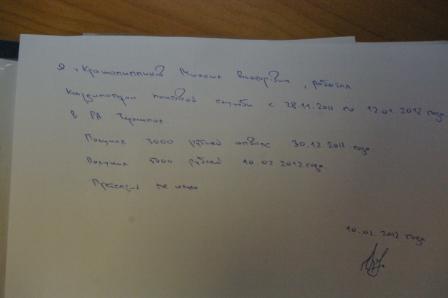 Я, Максим Викторович, работал
координатором почтовой службы с 28.11.2011 по 12.01.2012
в РА
Получил 3000 рублей аванс 30.12.2011 года
Получил 5000 рублей 10.02.2012 года
Претензий не имею
10.02.2012 года